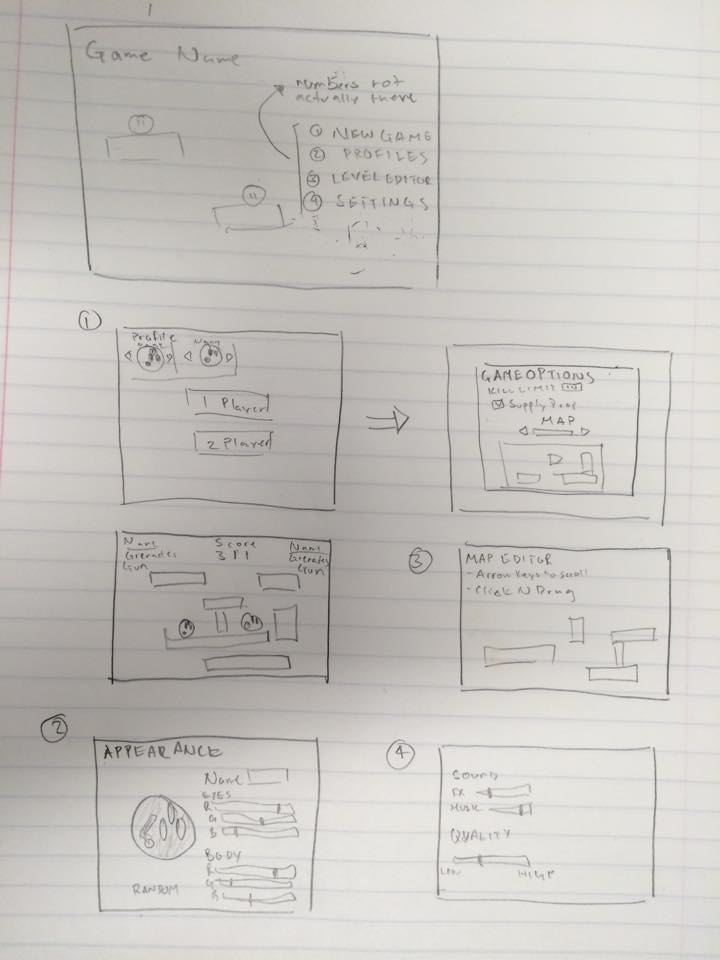 1
Game Name
numbers not
actually there
① NEW GAME
② PROFILES
③ LEVEL EDITOR
④ SETTINGS
①
Profile
Name
Name
1 Player
2 Player
GAME OPTIONS
KILL LIMIT 10
Supply Drop
MAP
Name
Grenades
Gun
Score
3 | 1
Name
Grenades
Gun
③
MAP EDITOR
- Arrow Keys to scroll
- Click N Drag
②
APPEARANCE
Name
EYES
R
G
B
BODY
R
G
B
RANDOM
④
SOUND
FX
MUSIC
QUALITY
LOW
HIGH